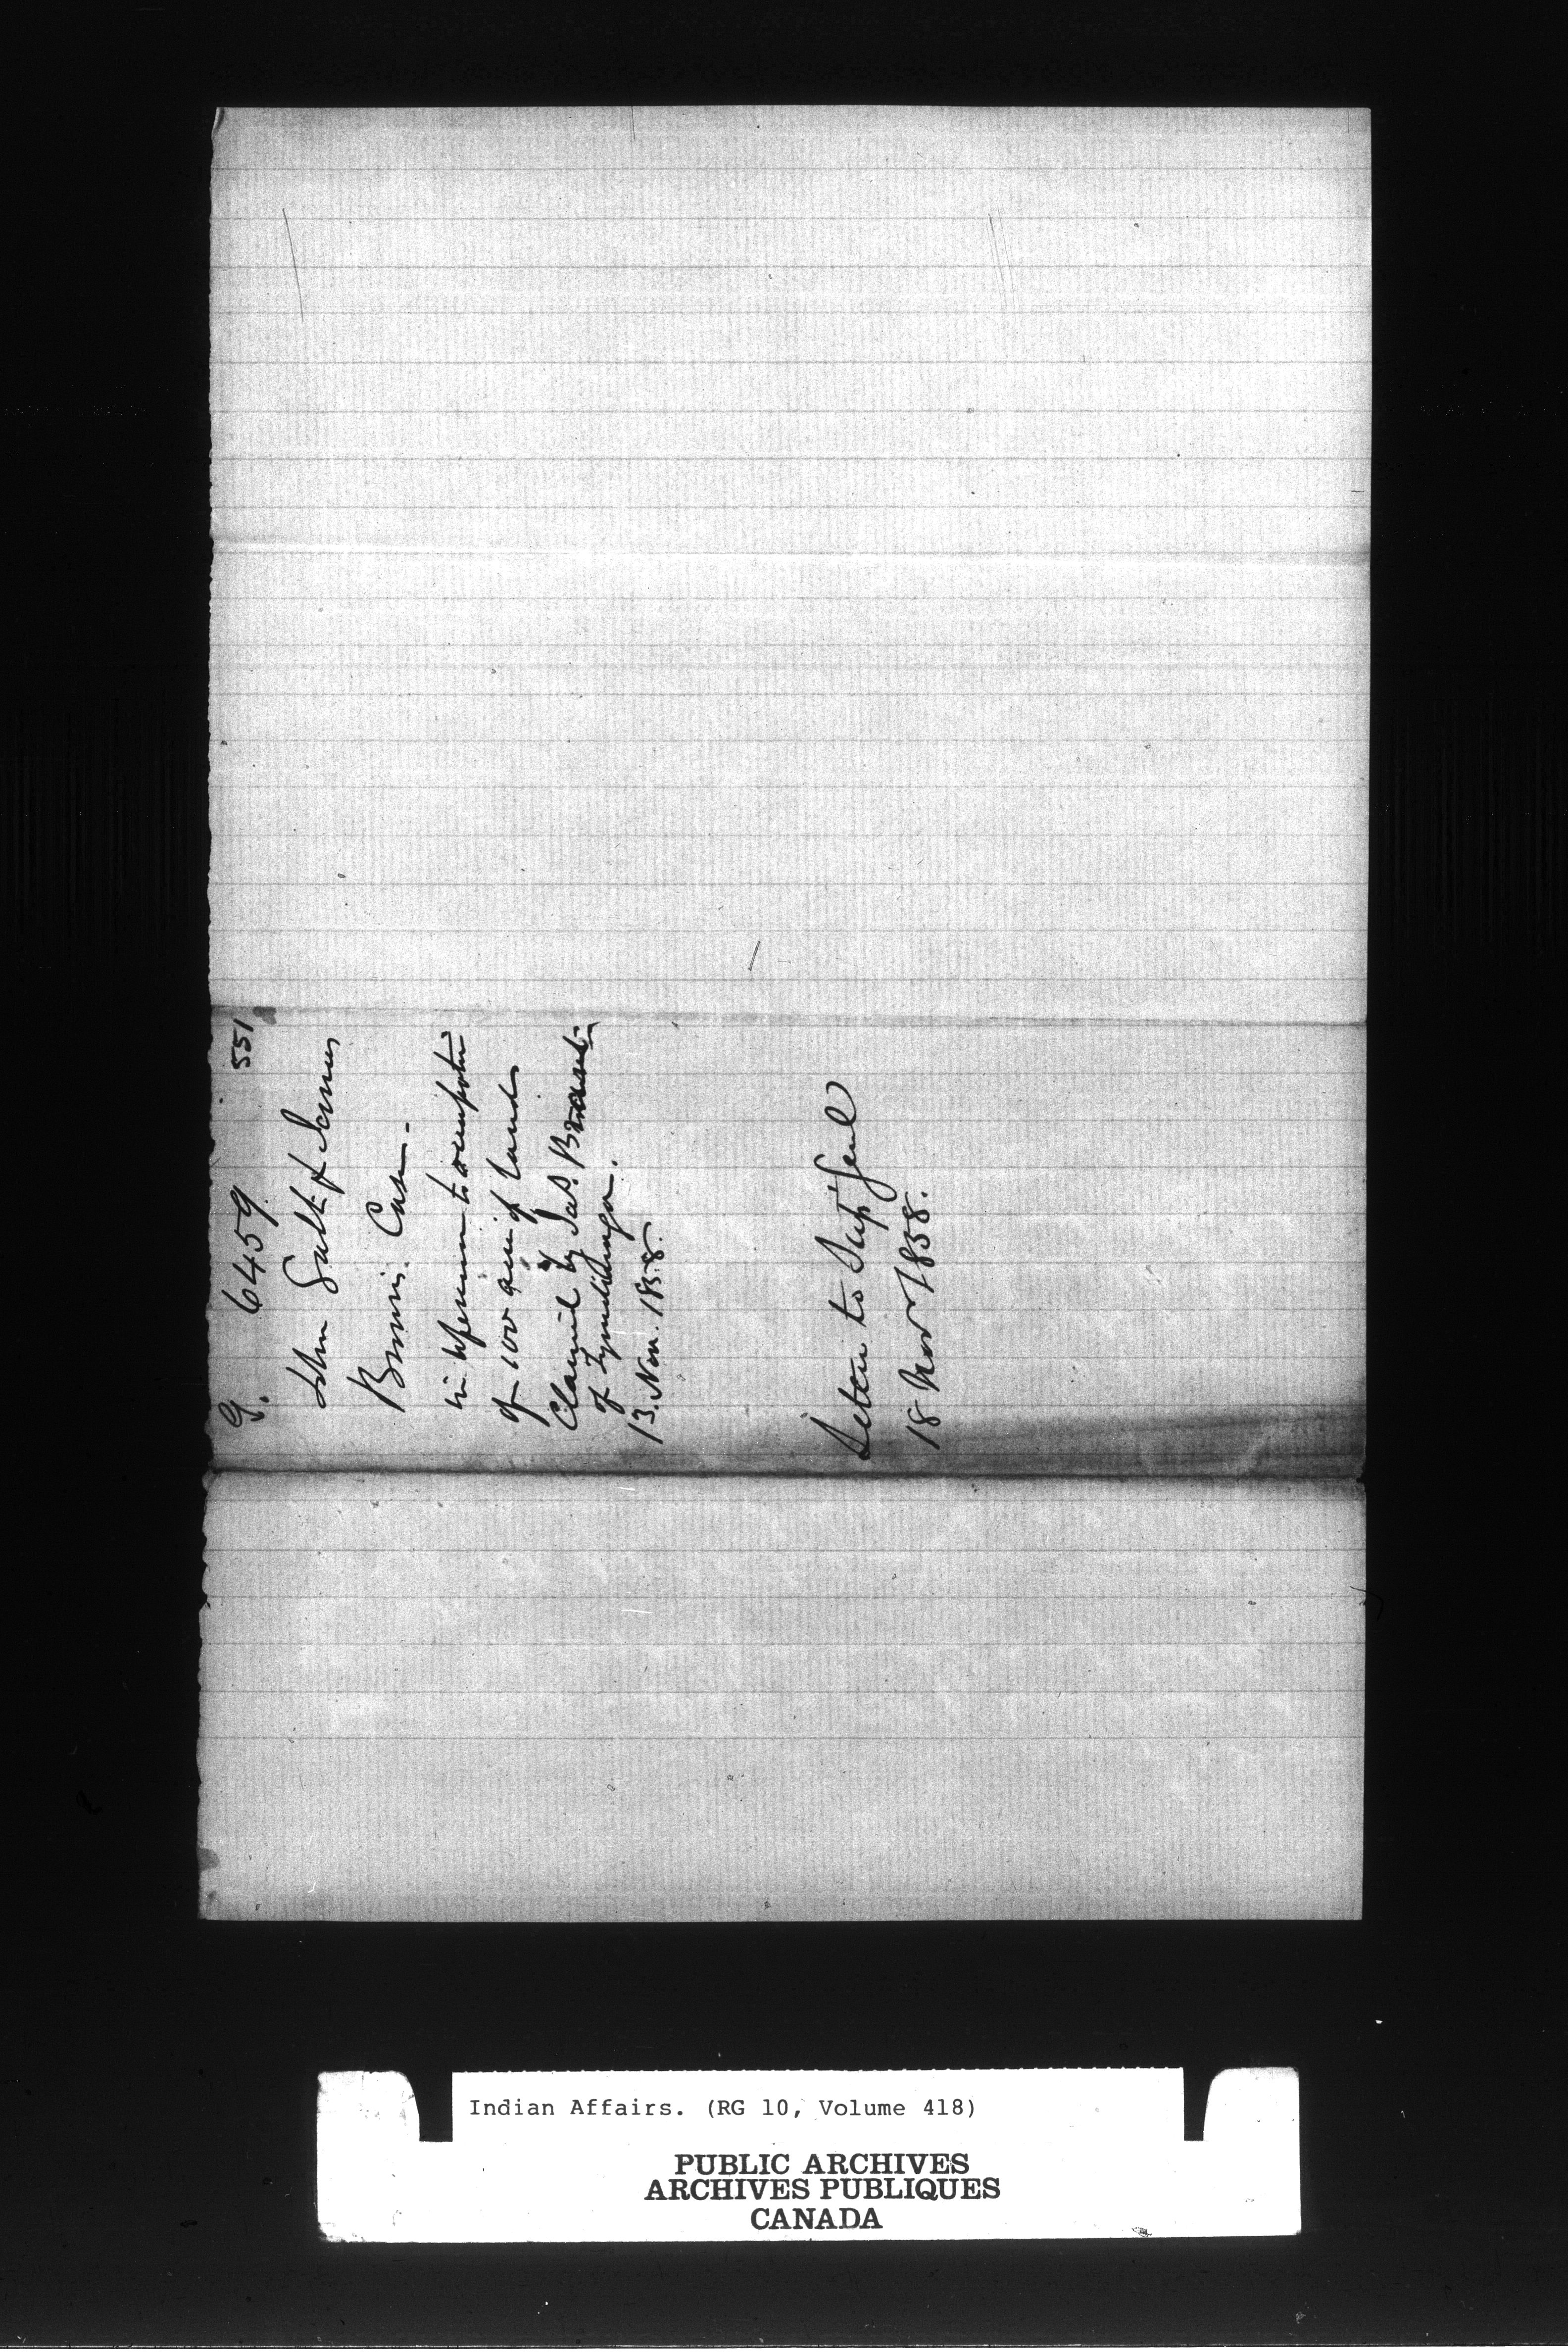 G. 6459. 551
John Galt & James
Case.-
in reference to
of 100 acres of land
Claimed by Jas.
of Tyendinaga.
13. Nov. 1858.
to Supt Genl
18 Nov 1858.
Indian Affairs. (RG 10, Volume 418)
PUBLIC ARCHIVES
ARCHIVES PUBLIQUES
CANADA